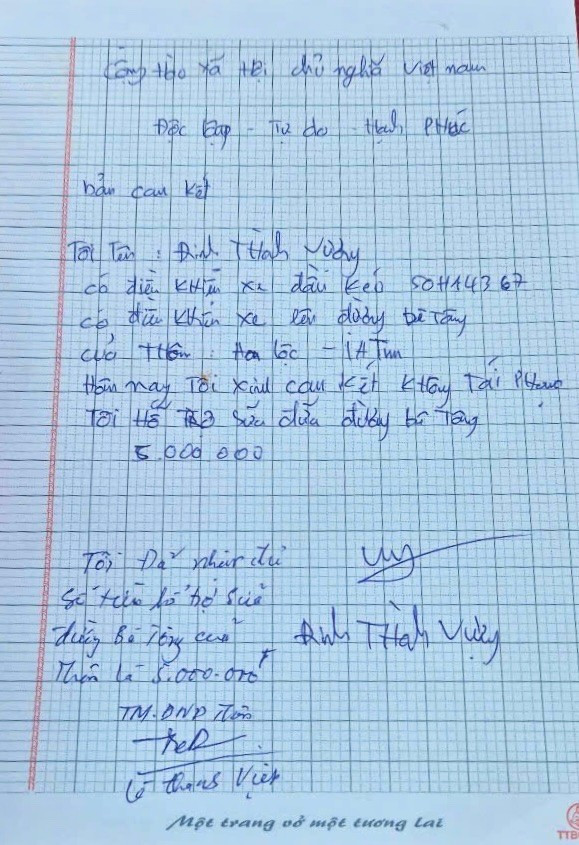 Cộng hòa xã hội chủ nghĩa Việt nam
Độc lập - Tự do - Hạnh PHúc
bản cam kết
Tôi Tên : Đinh THành Vương
có điều KHiển xe đầu kéo 50H14367
có điều KHiển xe lên đường bê tông
của THôn : Hoa lộc
Hôm nay Tôi xin cam kết KHông Tái PHạm
Tôi Hỗ Trợ sữa chữa đường bê Tông
5.000.000
Tôi Đã nhận đủ
số tiền hỗ trợ sữa
đường Bê Tông của
Thôn là 5.000.000đ
Đinh THành Vương
TM. Thôn
Lê Thành Việt
Một trang vở một tương lai